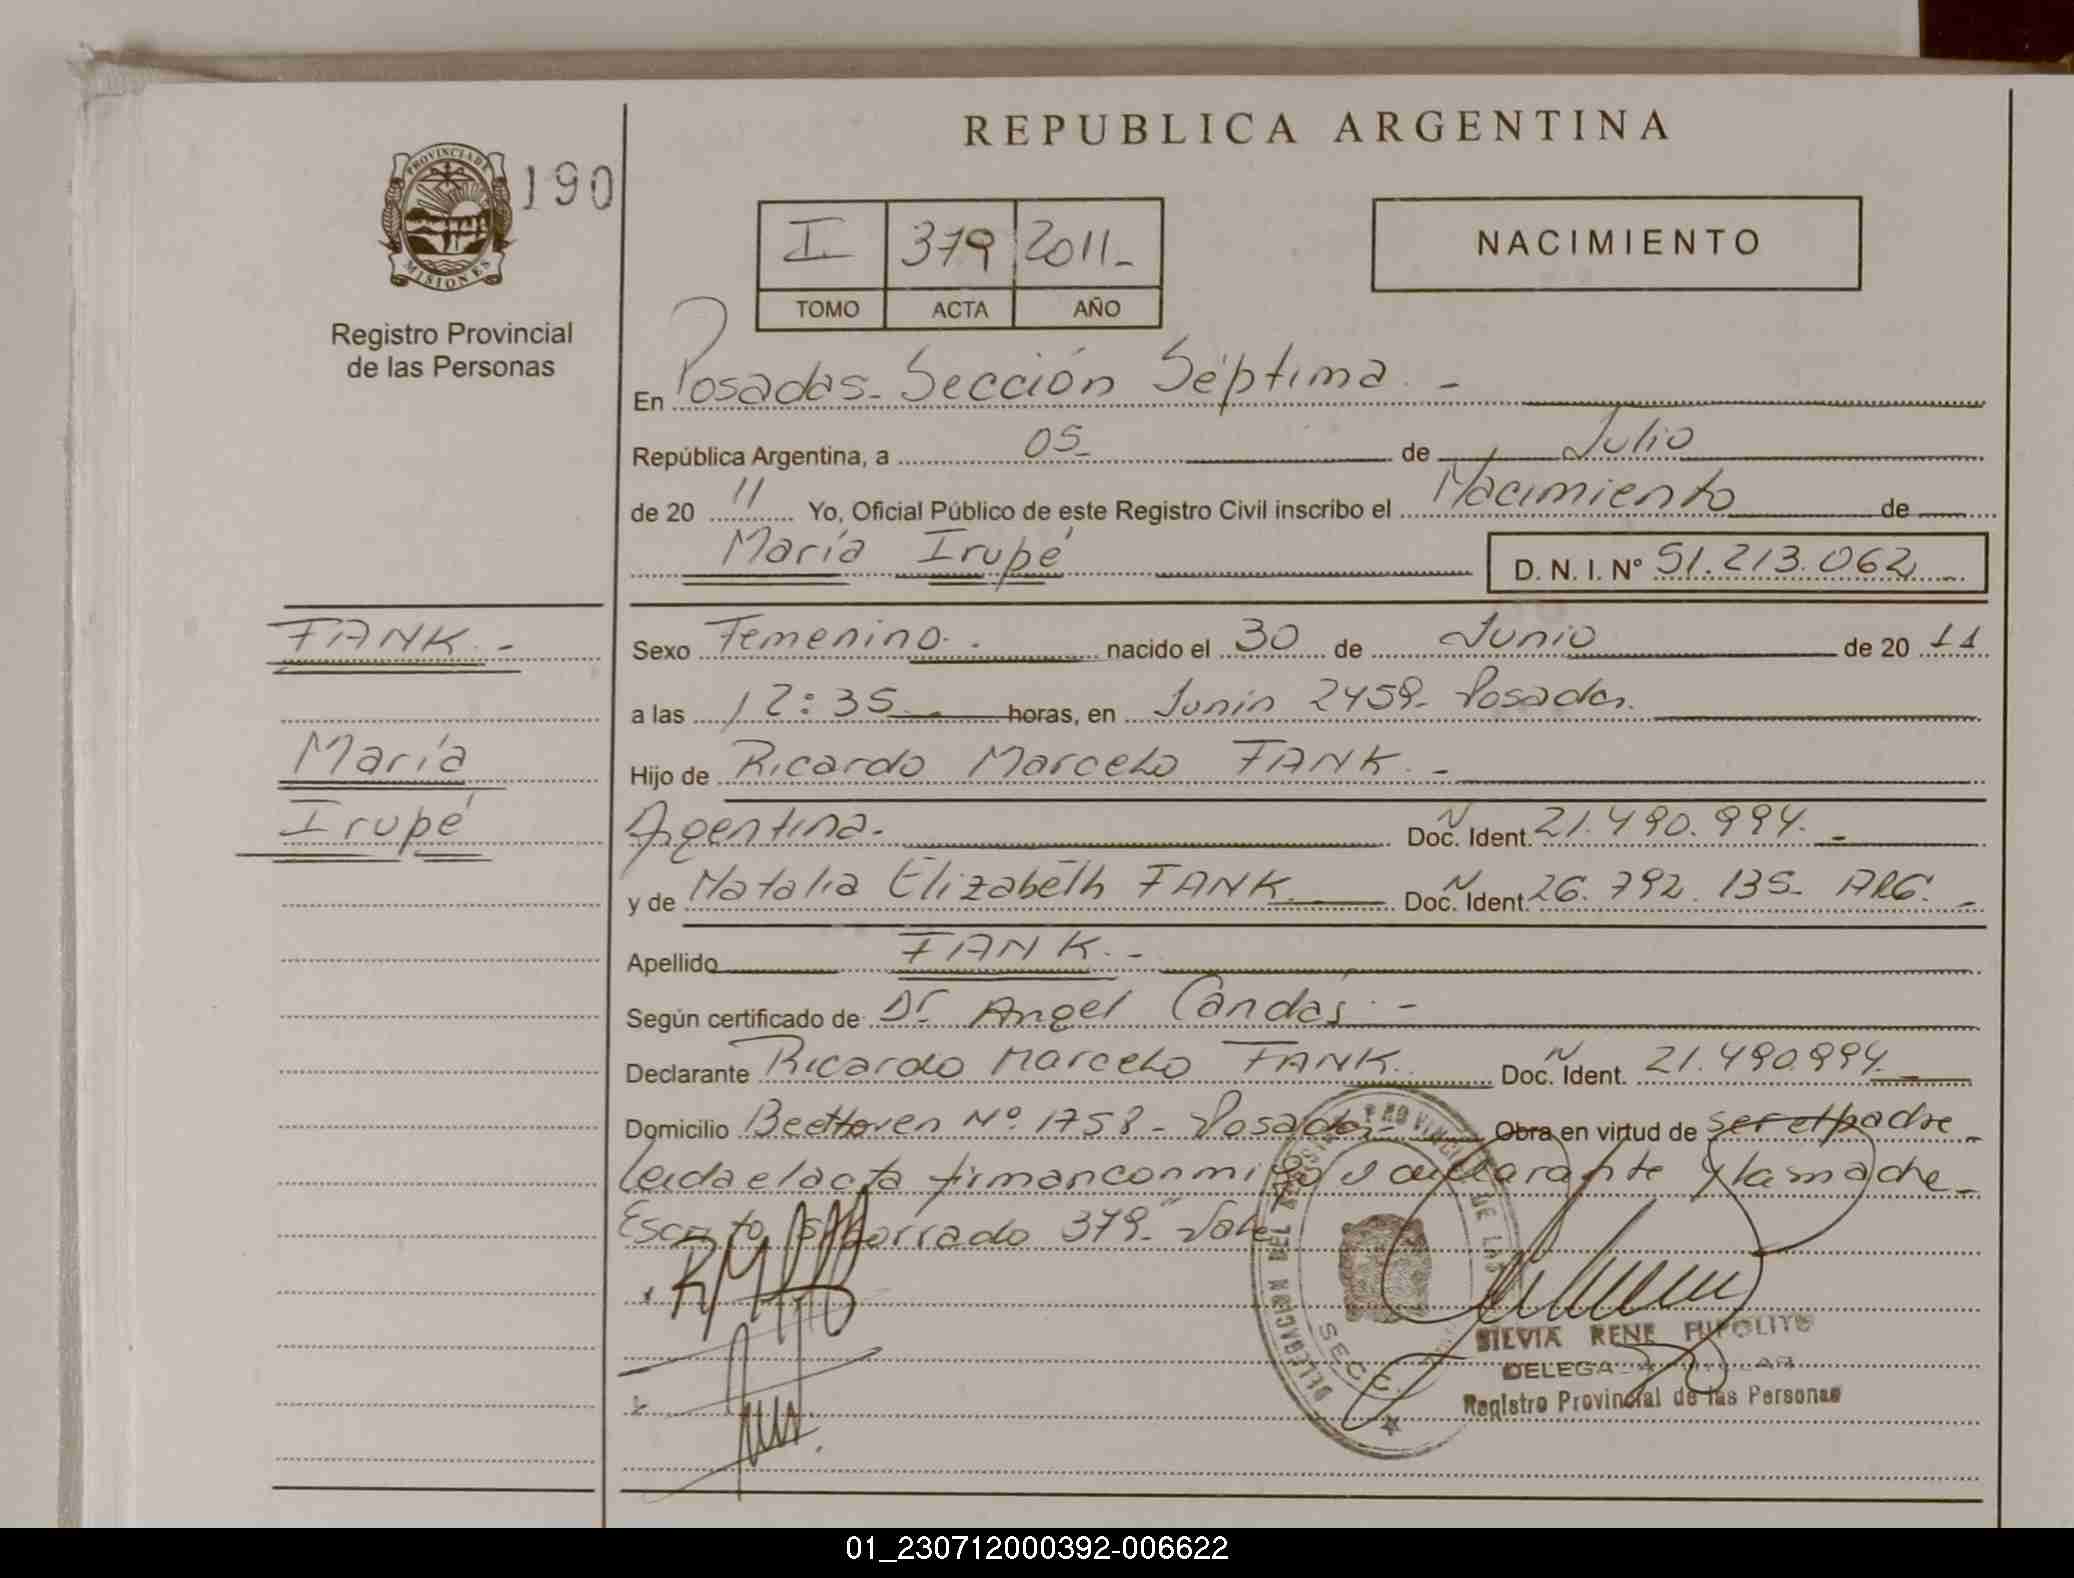 REPUBLICA ARGENTINA
PROVINCIA DE
MISIONES
190
Registro Provincial
de las Personas
I. 379 2011-
TOMO ACTA AÑO
NACIMIENTO
En Posadas- Sección Séptima. -
República Argentina, a 05- de Julio
de 20 11 Yo, Oficial Público de este Registro Civil inscribo el Nacimiento de
María Irupé D. N. I. Nº 51.213.062
FANK. -
María
Irupé
Sexo Femenino. - nacido el 30 de Junio de 20 11
a las 12:35 horas, en Junín 2459- Posadas.
Hijo de Ricardo Marcelo FANK. -
Argentina. Doc. N Ident. 21.490.994. -
y de Natalia Elizabeth FANK Doc. N Ident. 26.792.135- ARG. -
Apellido FANK. -
Según certificado de Dr. Angel Candas. -
Declarante Ricardo Marcelo FANK. Doc. N Ident. 21.490.994. -
Domicilio Beethoven Nº 1758- Posadas- Obra en virtud de ser el padre -
Leida el acta firman conmigo el declarante y la madre -
Escrito s/borrado 379- Vale
DELEGACION DEL REGISTRO PROVINCIAL DE LAS
SECC.
SILVIA RENE HIPOLITO
Registro Provincial de las Personas
01_230712000392-006622